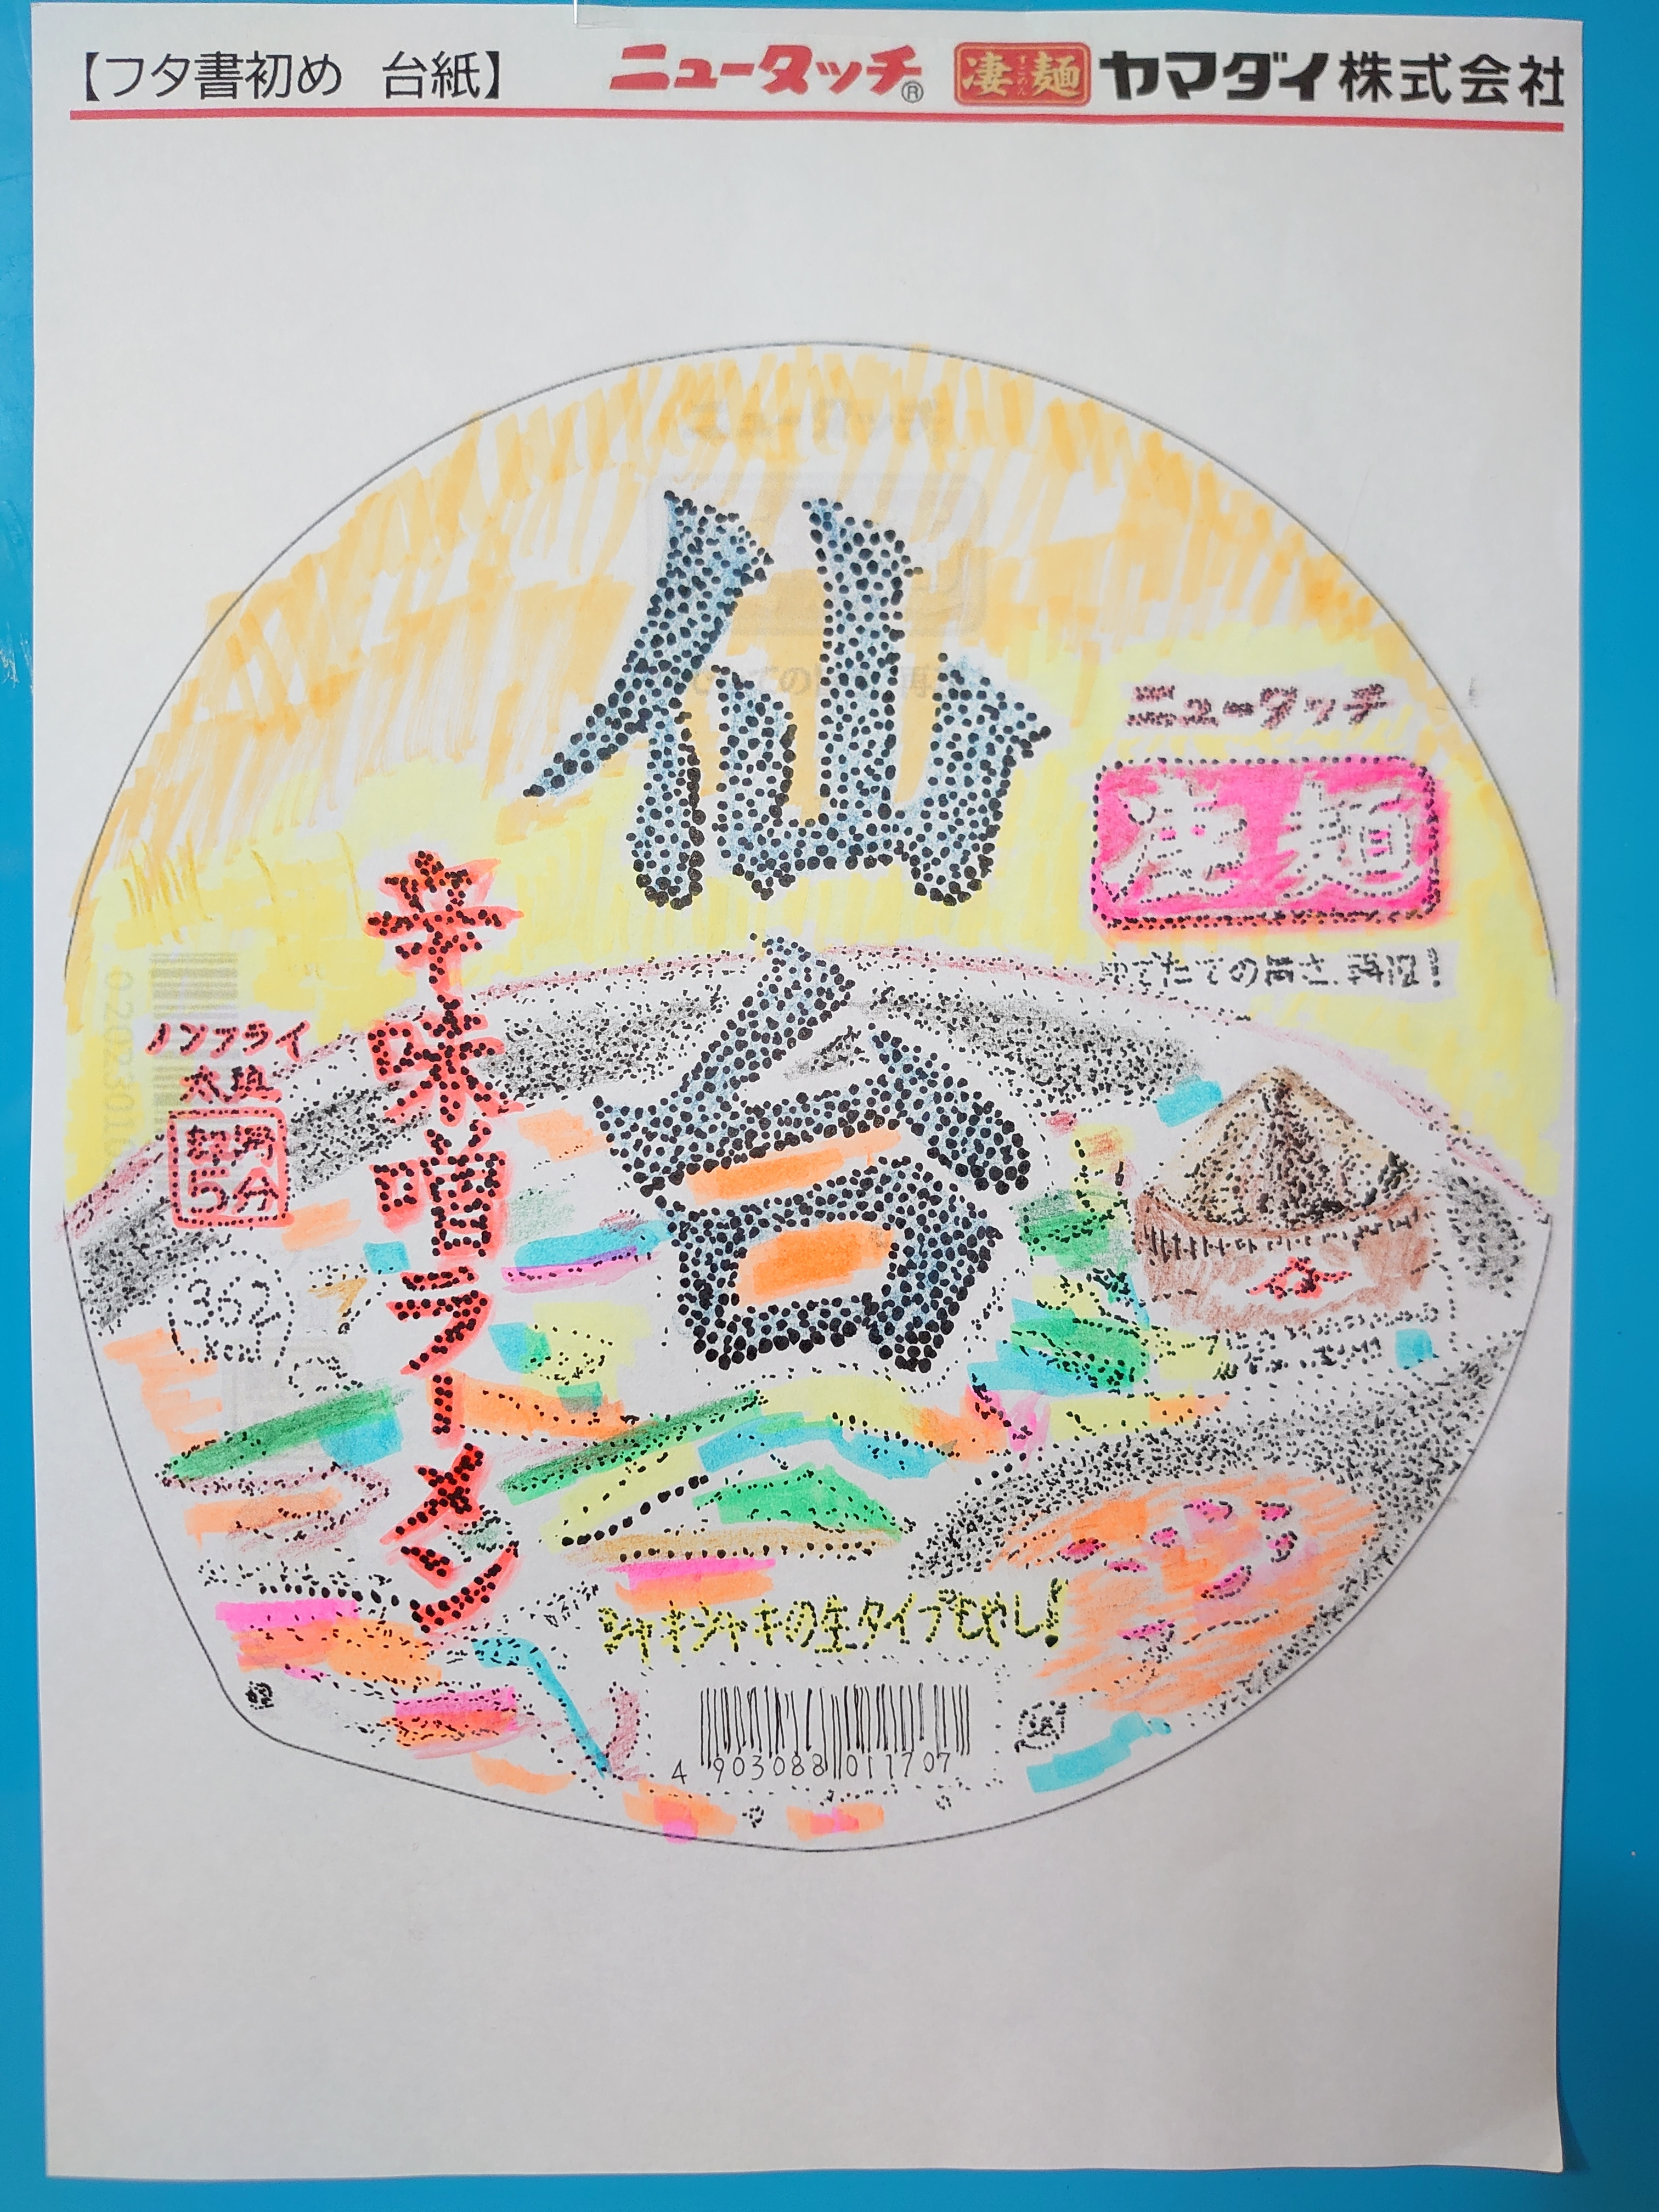 【フタ書初め 台紙】 ニュータッチ® 凄麺 ヤマダイ株式会社
仙台
ニュータッチ
凄麺
ゆでたての旨さ、再現!
辛味噌ラーメン
ノンフライ
太麺
熱湯
5分
362
kcal
シャキシャキの生タイプもやし!
4 903088 011707